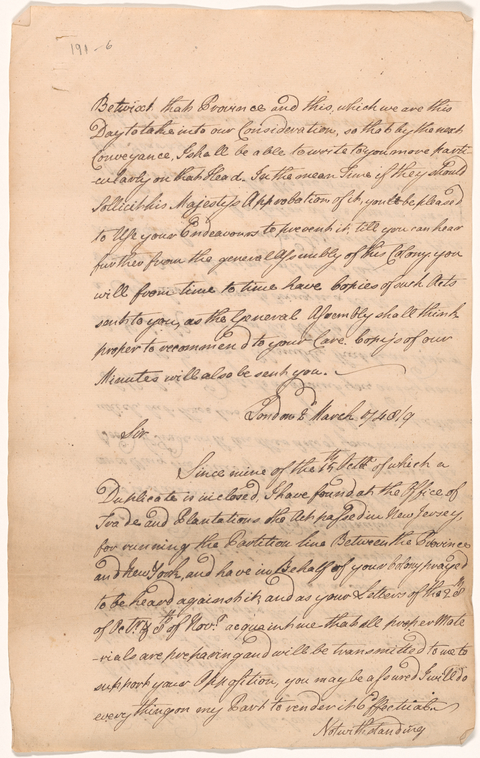 191-6
Betwixt that Province and this, which we are this
Day to take into our Consideration, so that by the next
Conveyance, I shall be able to write to you more parti
cularly on that Head. In the mean Time if they should
Sollicit his Majestys Approbation of it, you'l be pleased
to Use your Endeavours to prevent it, till you can hear
further from the general Assembly of this Colony. you
will from time to time have Copies of such Acts
sent to you, as the General Assembly shall think
proper to recommend to your Care. Copys of our
Minutes will also be sent you.
London March 1748/9
Sir
Since mine of the of which a
Duplicate is inclosed, I have found at the Office of
Trade and Plantations the Act passed in New Jersey
for running the Partition line Between the Province
and New York, and have in Behalf of your Colony prayed
to be heard against it and as your Letters of the
of & of Nov.r acquaint me that all proper Mate
-rials are preparing and will be transmitted to me to
support your Opposition, you may be assured I will do
every thing on my Part to render it Effectual
Notwithstanding